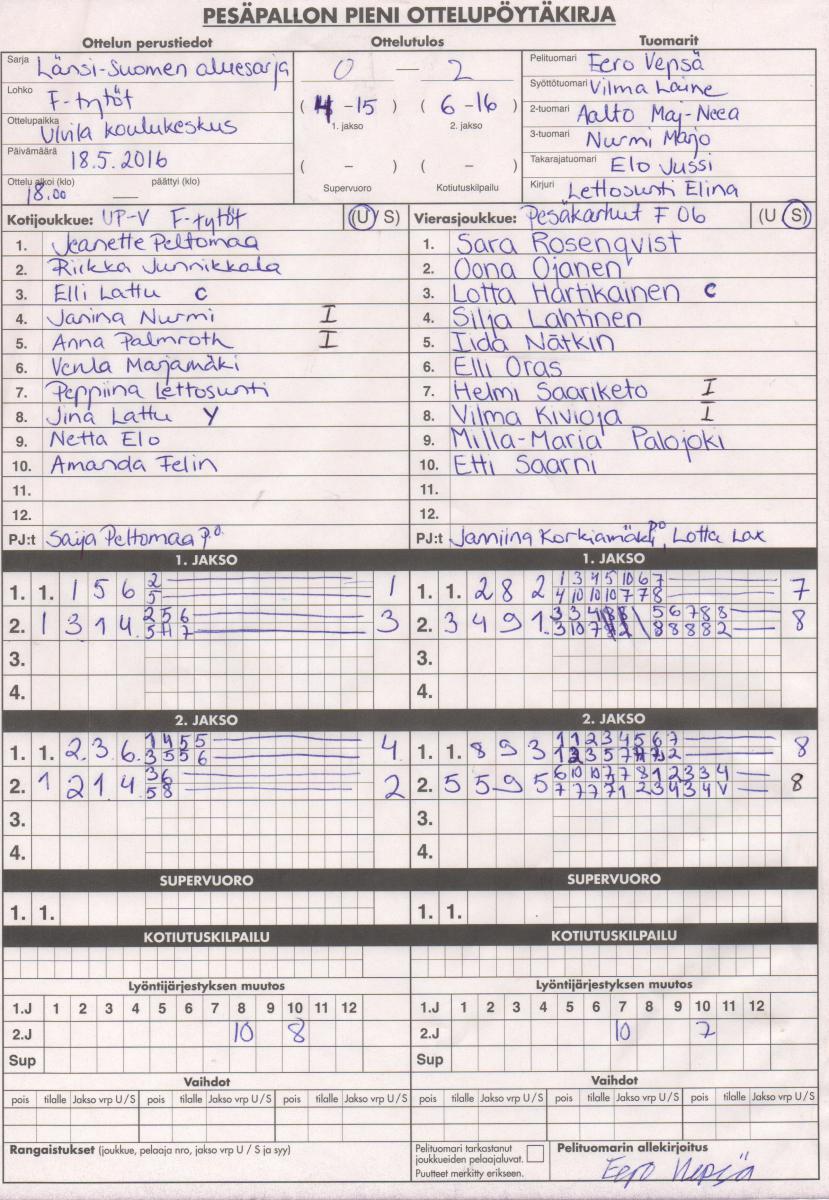 PESÄPALLON PIENI OTTELUPÖYTÄKIRJA
Ottelun perustiedot
Sarja Länsi-Suomen aluesarja
Lohko F-tytöt
Ottelupaikka Ulvila koulukeskus
Päivämäärä 18.5.2016
Ottelu alkoi (klo) päättyi (klo)
18.00 —
Ottelutulos
0 — 2
( 4 - 15 ) ( 6 - 16 )
1. jakso 2. jakso
( - ) ( - )
Supervuoro Kotiutuskilpailu
Tuomarit
Pelituomari Eero Vepsä
Syöttötuomari Vilma Laine
2-tuomari Aalto Maj-Neea
3-tuomari Nurmi Marjo
Takarajatuomari Elo Jussi
Kirjuri Lettosunti Elina
Kotijoukkue: UP-V F-tytöt (U/S)
1. Jeanette Peltomaa
2. Riikka Junnikkala
3. Elli Lattu C
4. Janina Nurmi I
5. Anna Palmroth I
6. Venla Marjamäki
7. Peppiina Lettosunti
8. Jina Lattu Y
9. Netta Elo
10. Amanda Felin
11.
12.
PJ:t Saija Peltomaa p.o.
Vierasjoukkue: Pesäkarhut F 06 (U/S)
1. Sara Rosenqvist
2. Oona Ojanen
3. Lotta Hartikainen C
4. Silja Lahtinen
5. Iida Nätkin
6. Elli Oras
7. Helmi Saariketo I
8. Vilma Kivioja I
9. Milla-Maria Palojoki
10. Etti Saarni
11.
12.
PJ:t Janniina Korkiamäki po, Lotta Lax
1. JAKSO
1. 1. 1 5 6 2 1
5
2. 1 3 1 4. 2 5 6 3
5 11 7
3.
4.
1. JAKSO
1. 1. 2 8 2 1 3 4 5 10 6 7 7
4 10 10 10 7 7 8
2. 3 4 9 1. 3 3 4 5 6 7 8 8 8
3 10 7 8 8 8 8 2
3.
4.
2. JAKSO
1. 1. 2. 3 6. 1 4 5 5 4
3 5 5 6
2. 1 2 1 4. 3 6 2
5 8
3.
4.
2. JAKSO
1. 1. 8 9 3 1 1 2 3 4 5 6 7 8
2. 5 5 9 5 6 10 10 7 7 8 1 2 3 3 4 8
7 7 7 7 1 2 3 4 3 4 V
3.
4.
SUPERVUORO
1. 1.
SUPERVUORO
1. 1.
KOTIUTUSKILPAILU
KOTIUTUSKILPAILU
Lyöntijärjestyksen muutos
1.J 1 2 3 4 5 6 7 8 9 10 11 12
2.J 10 8
Sup
Lyöntijärjestyksen muutos
1.J 1 2 3 4 5 6 7 8 9 10 11 12
2.J 10 7
Sup
Vaihdot
pois tilalle Jakso vrp U/S pois tilalle Jakso vrp U/S pois tilalle Jakso vrp U/S
Vaihdot
pois tilalle Jakso vrp U/S pois tilalle Jakso vrp U/S pois tilalle Jakso vrp U/S
Rangaistukset (joukkue, pelaaja nro, jakso vrp U / S ja syy)
Pelituomari tarkastanut
joukkueiden pelaajaluvat.
Puutteet merkitty erikseen.
Pelituomarin allekirjoitus
Eero Vepsä